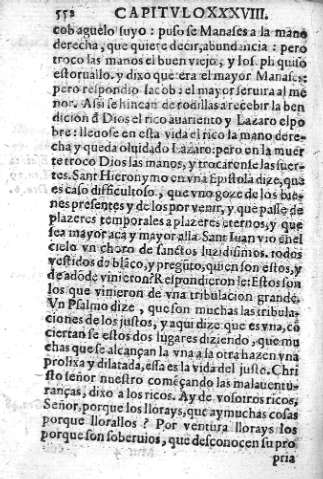 552 CAPITVLO XXXVIII.
cob aguelo suyo: puso se Manases a la mano
derecha, que quiere decir, abundancia: pero
troco las manos el buen viejo, y Ioseph quiso
estoruallo. y dixo que era el mayor Manases:
pero respondio Iacob: el mayor seruira al me
nor. Assi se hincan de rodillas a recebir la ben
dicion đ Dios el rico auariento y Lazaro el po
bre: lleuose en esta vida el rico la mano dere-
cha y queda oluidado Lazaro: pero en la muer
te troco Dios las manos, y trocaronse las suer-
tes. Sant Hieronymo en vna Epistola dize, que
es caso difficultoso, que vno goze de los bie-
nes presentes y de los por venir, y que passe de
plazeres temporales a plazeres eternos, y que
sea mayor aca y mayor alla. Sant Iuan vio en el
cielo vn choro de sanctos luzidissimos. todos
vestidos de blãco, y pregũto, quien son estos, y
de adõde vinieron? Respondieron le: Estos son
los que vinieron de vna tribulacion grande.
Vn Psalmo dize, que son muchas las tribula-
ciones de los justos, y aqui dize que es vna, cõ
ciertan se estos dos lugares diziendo, que mu
chas que se alcançan la vna a la otra hazen vna
prolixa y dilatada, essa es la vida del justo. Chri
sto señor nuestro comẽçando las malauentu-
ranças, dixo a los ricos. Ay de vosotros ricos,
Señor, porque los llorays, que ay muchas cosas
porque llorallos? Por ventura llorays los
porque son soberuios, que desconocen su pro
pria